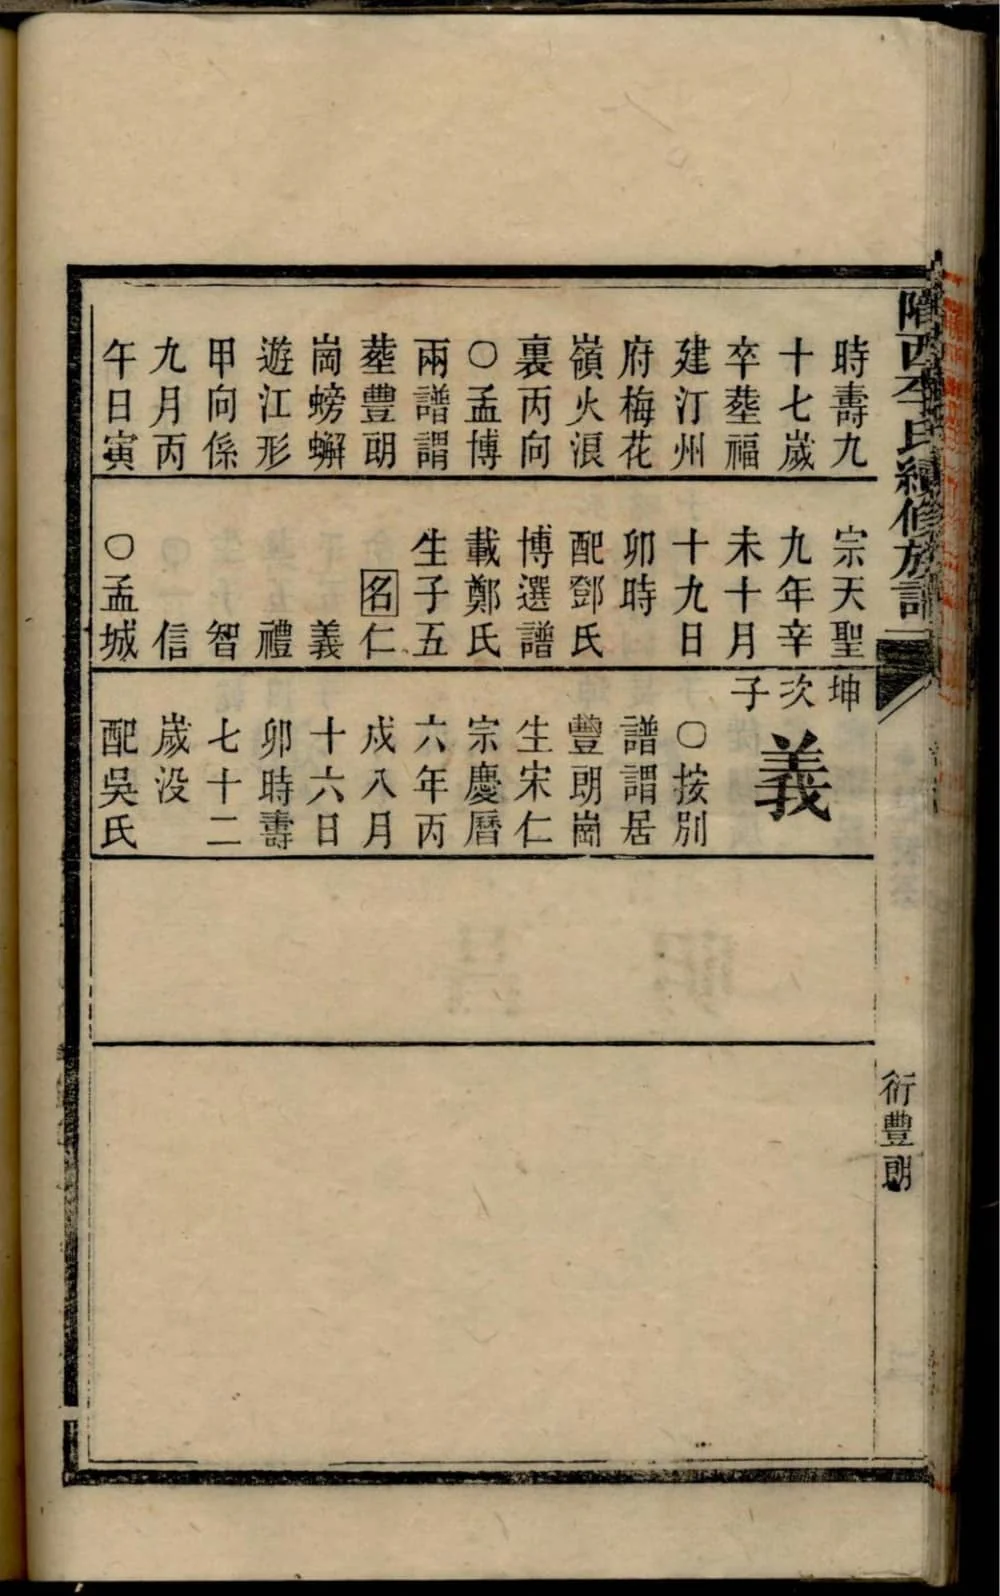 隴西李氏續修族譜
時壽九
十七嵗
卒塟福
建汀州
府梅花
嶺火浪
裏丙向
○孟博
兩譜謂
塟豐朗
崗螃蠏
遊江形
甲向係
九月丙
午日寅
宗天聖
九年辛
未十月
十九日
卯時
配鄧氏
博選譜
載鄭氏
生子五
名仁
義
禮
智
信
○孟城
坤
次
子
義
○按別
譜謂居
豐朗崗
生宋仁
宗慶曆
六年丙
戍八月
十六日
卯時壽
七十二
嵗没
配吳氏
衍豐朗